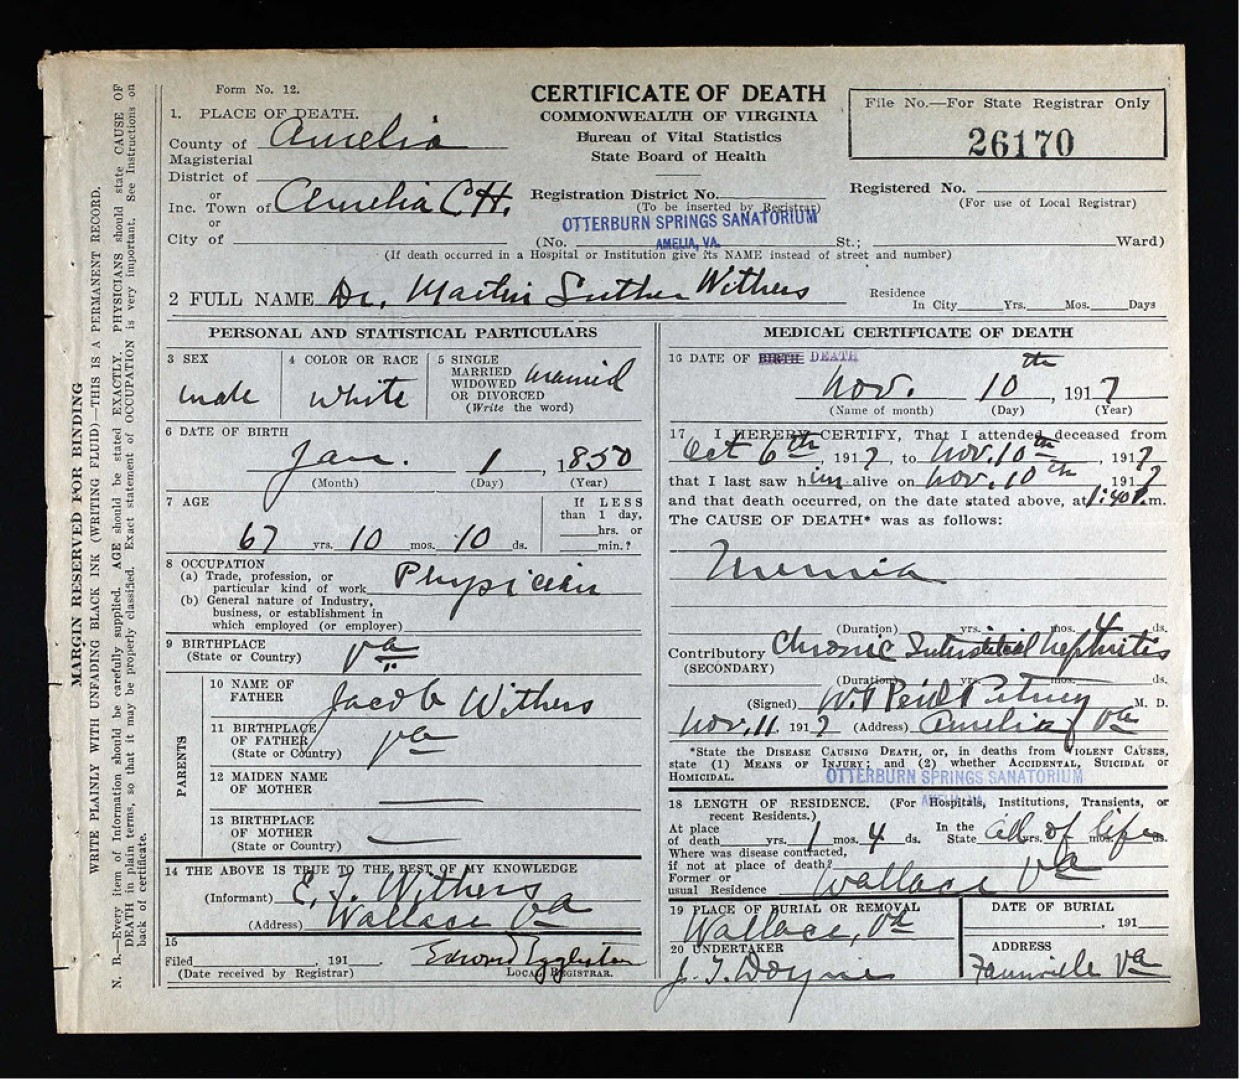 Form No. 12.
CERTIFICATE OF DEATH
COMMONWEALTH OF VIRGINIA
Bureau of Vital Statistics
State Board of Health
File No.—For State Registrar Only
26170
1. PLACE OF DEATH.
County of Amelia
Magisterial
District of
or
Inc. Town of Amelia C.H.
or
City of
Registration District No.
(To be inserted by Registrar)
Registered No.
(For use of Local Registrar)
OTTERBURN SPRINGS SANATORIUM
(No. AMELIA, VA. St.; Ward)
(If death occurred in a Hospital or Institution give its NAME instead of street and number)
2 FULL NAME Dr. Martin Luther Withers
Residence
In City Yrs. Mos. Days
PERSONAL AND STATISTICAL PARTICULARS
3 SEX
male
4 COLOR OR RACE
White
5 SINGLE
MARRIED
WIDOWED
OR DIVORCED
(Write the word)
married
6 DATE OF BIRTH
Jan. 1, 1850
(Month) (Day) (Year)
7 AGE
67 yrs. 10 mos. 10 ds.
If LESS
than 1 day,
hrs. or
min.?
8 OCCUPATION
(a) Trade, profession, or
particular kind of work Physician
(b) General nature of Industry,
business, or establishment in
which employed (or employer)
9 BIRTHPLACE
(State or Country) Va
PARENTS
10 NAME OF
FATHER
Jacob Withers
11 BIRTHPLACE
OF FATHER
(State or Country) Va
12 MAIDEN NAME
OF MOTHER
13 BIRTHPLACE
OF MOTHER
(State or Country)
14 THE ABOVE IS TRUE TO THE BEST OF MY KNOWLEDGE
(Informant) Withers
(Address) Wallace Va
15
Filed , 191 Edward Eggleston
(Date received by Registrar) LOCAL REGISTRAR.
MEDICAL CERTIFICATE OF DEATH
16 DATE OF BIRTH DEATH
Nov. 10th, 1917
(Name of month) (Day) (Year)
17 I HEREBY CERTIFY, That I attended deceased from
Oct 6th, 1917, to Nov. 10th, 1917
that I last saw him alive on Nov. 10th 1917
and that death occurred, on the date stated above, at 1:40 P.m.
The CAUSE OF DEATH* was as follows:
(Duration) yrs. mos. 4 ds.
Contributory Chronic Interstitial Nephritis
(SECONDARY)
(Duration) yrs. mos. ds.
(Signed) Putney M. D.
Nov. 11. 1917 (Address) Amelia Va
*State the DISEASE CAUSING DEATH, or, in deaths from VIOLENT CAUSES,
state (1) MEANS OF INJURY; and (2) whether ACCIDENTAL, SUICIDAL or
HOMICIDAL.
OTTERBURN SPRINGS SANATORIUM
AMELIA, VA.
18 LENGTH OF RESIDENCE. (For Hospitals, Institutions, Transients, or
recent Residents.)
At place
of death yrs. 1 mos. 4 ds.
In the
State all yrs. of mos. life ds.
Where was disease contracted,
if not at place of death?
Former or
usual Residence Wallace Va
19 PLACE OF BURIAL OR REMOVAL
Wallace, Va
DATE OF BURIAL
, 191
20 UNDERTAKER
J. T. Doyne
ADDRESS
Farmville Va
MARGIN RESERVED FOR BINDING
WRITE PLAINLY WITH UNFADING BLACK INK (WRITING FLUID)—THIS IS A PERMANENT RECORD.
N. B.—Every item of Information should be carefully supplied. AGE should be stated EXACTLY. PHYSICIANS should state CAUSE OF
DEATH in plain terms, so that it may be properly classified. Exact statement of OCCUPATION is very important. See Instructions on
back of certificate.